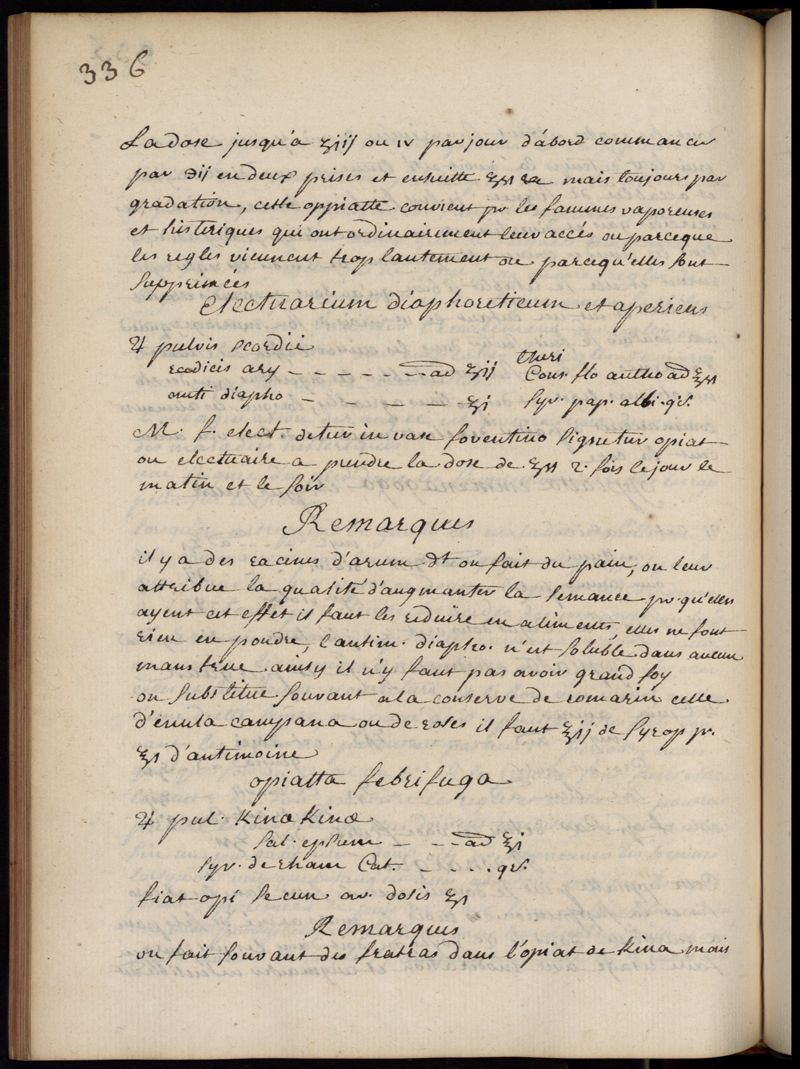 336
La dose jusqu'a ʒiij ou iv par jour d'abord commancer
par ℈ij en deux prises et ensuitte mais toujours par
gradation, cette oppiatte convient pr les fammes vaporeuses
et histeriques qui ont ordinairement leur accés ou parceque
les regles viennent trop lantement ou parcequ'elles sont
supprimées
Electuarium diaphoreticum et aperiens
♃ pulvis scordii
radicis ary - - - - - - ad ʒij theri
Cons. flo antho ad
anti diapho - - - - - ʒi Syr. pap. albi. q.s.
M. f. elect. detur in vase foventino signetur opiat
ou electuaire a prendre la dose de 2. fois le jour le
matin et le soir
Remarques
il y a des racines d'arum dt on fait du pain, on leur
attribue la qualité d'augmanter la semance pr. qu'elles
ayent cet effet il faut les reduire en aliments, elles ne font
rien en poudre, l'antim. diapho. n'est soluble dans aucun
manstrue ainsy il n'y faut pas avoir grand foy
on substitue souvant a la conserve de romarin celle
d'enula campana ou de roses il faut ʒij de syrop pr.
ʒi d'antimoine
opiatta febrifuga
♃ pul. Kinæ Kinæ
Sal. epsum - - - ad ʒi
Syr. de rham Cat. - - - - q.s.
fiat opi secun ar. dosis ʒi
Remarques
on fait souvant des fratras dans l'opiat de Kina mais